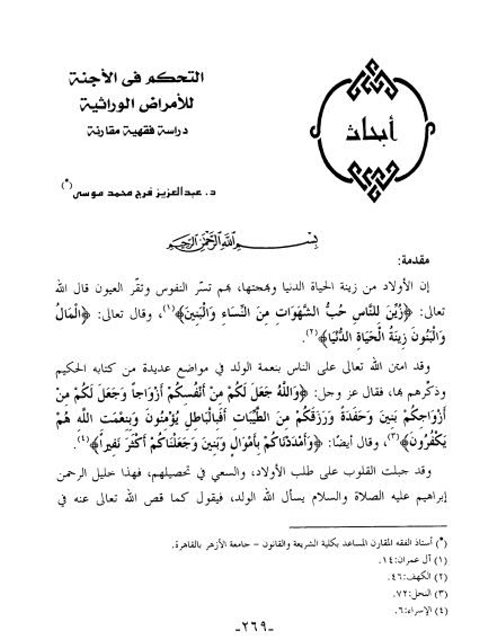 أبحاث
التحكم فى الأجنة
للأمراض الوراثية
دراسة فقهية مقارنة
د. عبدالعزيز فرج محمد موسى(*)
بسم الله الرحمن الرحيم
مقدمة:
إن الأولاد من زينة الحياة الدنيا وبهجتها، بهم تسرّ النفوس وتقرّ العيون قال الله
تعالى: ﴿زُيِّنَ لِلنَّاسِ حُبُّ الشَّهَوَاتِ مِنَ النِّسَاءِ وَالْبَنِينَ﴾(١)، وقال تعالى: ﴿الْمَالُ
وَالْبَنُونَ زِينَةُ الْحَيَاةِ الدُّنْيَا﴾(٢).
وقد امتن الله تعالى على الناس بنعمة الولد في مواضع عديدة من كتابه الحكيم
وذكّرهم بها، فقال عز وجل: ﴿وَاللَّهُ جَعَلَ لَكُمْ مِنْ أَنْفُسِكُمْ أَزْوَاجاً وَجَعَلَ لَكُمْ مِنْ
أَزْوَاجِكُمْ بَنِينَ وَحَفَدَةً وَرَزَقَكُمْ مِنَ الطَّيِّبَاتِ أَفَبِالْبَاطِلِ يُؤْمِنُونَ وَبِنِعْمَتِ اللَّهِ هُمْ
يَكْفُرُونَ﴾(٣)، وقال أيضًا: ﴿وَأَمْدَدْنَاكُمْ بِأَمْوَالٍ وَبَنِينَ وَجَعَلْنَاكُمْ أَكْثَرَ نَفِيراً﴾(٤).
وقد جبلت القلوب على طلب الأولاد، والسعي في تحصيلهم، فهذا خليل الرحمن
إبراهيم عليه الصلاة والسلام يسأل الله الولد، فيقول كما قص الله تعالى عنه في
(*) أستاذ الفقه المقارن المساعد بكلية الشريعة والقانون – جامعة الأزهر بالقاهرة.
(١) آل عمران: ١٤.
(٢) الكهف: ٤٦.
(٣) النحل: ٧٢.
(٤) الإسراء: ٦.
-٢٦٩-